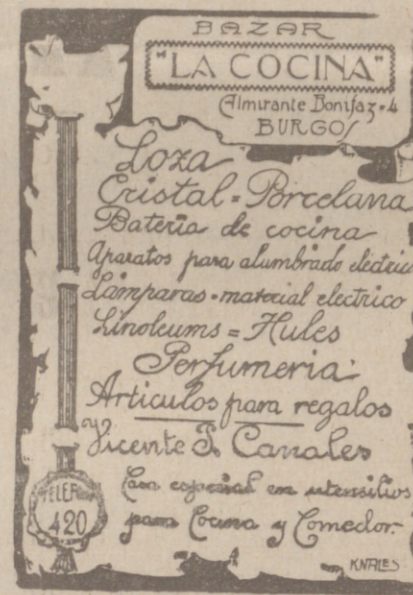 BAZAR
"LA COCINA"
Almirante Bonifaz-4
BURGOS
Loza
Cristal = Porcelana
Bateria de cocina
Aparatos para alumbrado eléctric
Lámparas - material electrico
Linoleums = Hules
Perfumeria:
Articulos para regalos
Vicente S. Canales
Casa especial en utensilios
para Cocina y Comedor.
TELEFONO
420
KNALES